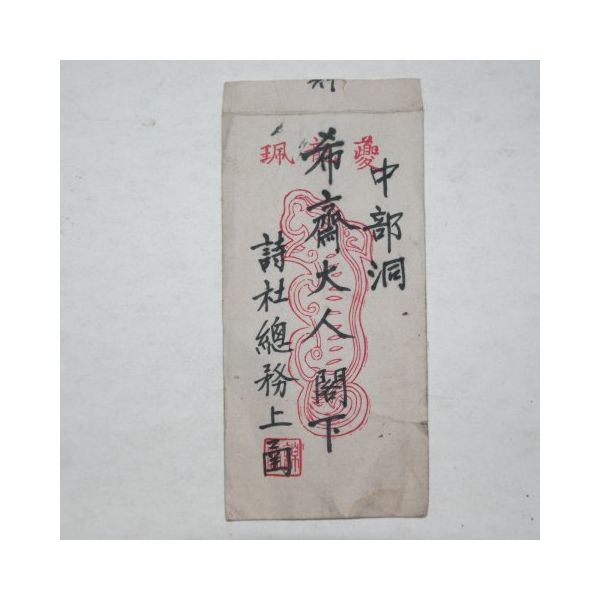 中部洞
希齋大人閣下
詩社總務上函
夔 珮